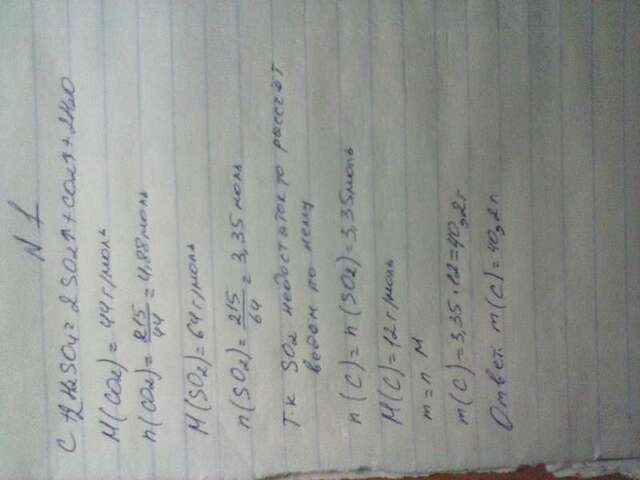 N 1
C + 2H2SO4 = 2SO2↑ + CO2↑ + 2H2O
M(CO2) = 44 г/моль
n(CO2) = 215/44 = 4,88 моль
M(SO2) = 64 г/моль
n(SO2) = 215/64 = 3,35 моль
Т.к SO2 недостаток то рассчёт
ведём по нему
n(C) = n(SO2) = 3,35 моль
M(C) = 12 г/моль
m = n M
m(C) = 3,35 · 12 = 40,2 г
Ответ: m(C) = 40,2 г.